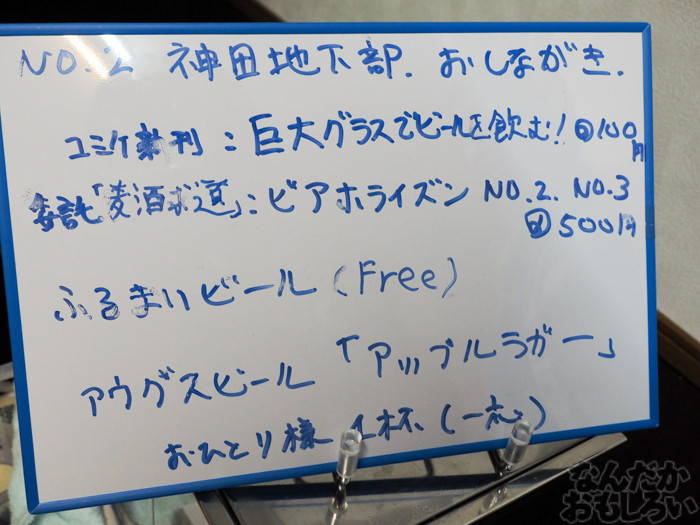 NO.2 神田地下部. おしながき.
コミケ新刊：巨大グラスでビールを飲む！@100円
委託「麦酒求道」：ビアホライズン NO.2. NO.3
@500円
ふるまいビール（Free）
アウグスビール「アップルラガー」
おひとり様 1杯（一応）
なんだか
おもしろい